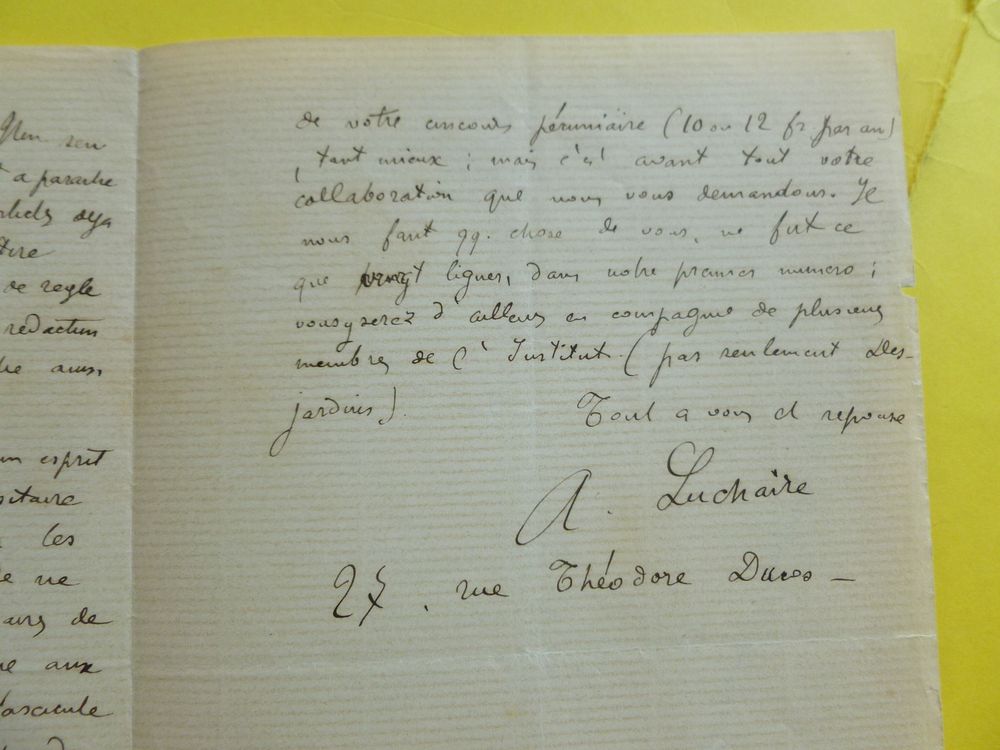 rien
a paraitre
deja
de regle
redaction
un esprit
les
ne
de
aux
fascicule
de votre concours pécuniaire (10 ou 12 fr. par an)
, tant mieux ; mais c'est avant tout votre
collaboration que nous vous demandons. Il
nous faut qq. chose de vous, ne fut ce
que vingt lignes, dans notre premier numero ;
vous y serez d'ailleurs en compagnie de plusieurs
membres de l'Institut. (pas seulement Des-
jardins).
Tout a vous et reponse
A. Luchaire
27, rue Théodore Ducos -